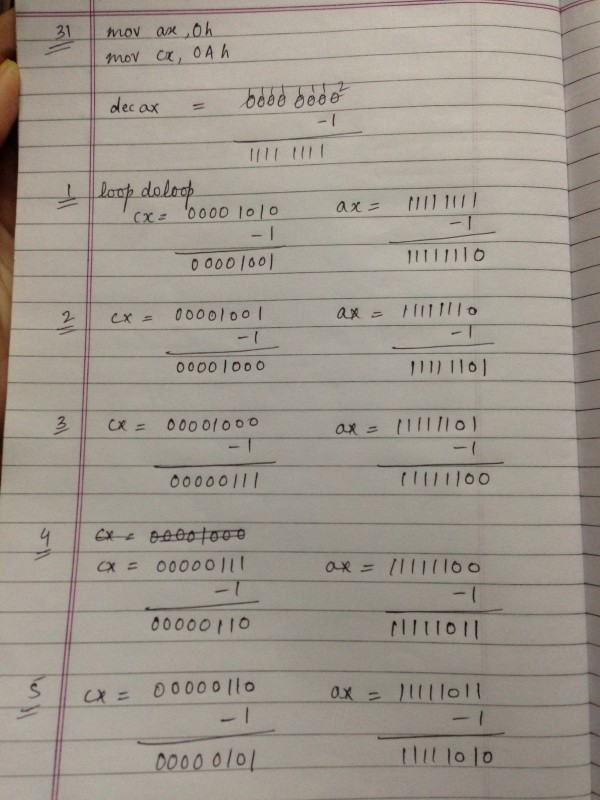 31 mov ax, 0h
mov cx, 0A h
dec ax = 0000 0000 2
-1
1111 1111
1 loop doloop
cx = 00001010 ax = 11111111
-1 -1
00001001 11111110
2 cx = 00001001 ax = 11111110
-1 -1
00001000 11111101
3 cx = 00001000 ax = 11111101
-1 -1
00000111 11111100
4 cx = 00001000
cx = 00000111 ax = 11111100
-1 -1
00000110 11111011
5 cx = 00000110 ax = 11111011
-1 -1
00000101 11111010